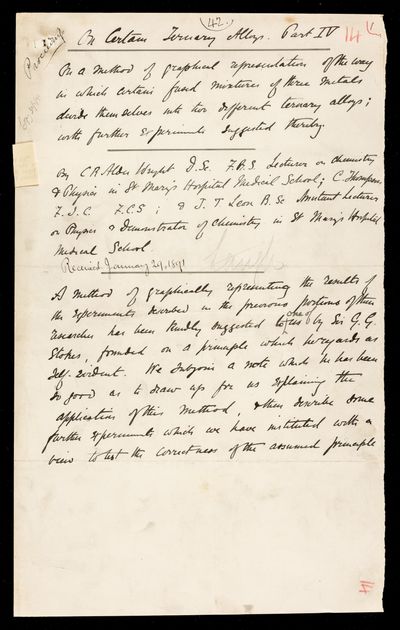 42.
On Certain Ternary Alloys. Part IV
14
Proceedings
On a method of graphical representation of the way
in which certain fused mixtures of three metals
divide themselves into two different ternary alloys;
with further experiments suggested thereby.
By C R Alder Wright D.Sc. F.R.S Lecturer on chemistry
& Physics in St Mary's Hospital Medical School; C. Thompson,
F.I.C. F.C.S; & J. T Leon B.Sc Assistant Lecturer
on Physics & Demonstrator of Chemistry in St Mary's Hospital
Medical School
Received January 29, 1891
A method of graphically representing the results of
the experiments described in the previous portions of these
researches has been kindly suggested to one of us by Sir G. G.
Stokes, founded on a principle which he regards as
self-evident. We subjoin a note which he has been
so good as to draw up for us explaining the
application of this method, & then describe some
further experiments which we have instituted with a
view to test the correctness of the assumed principle
14